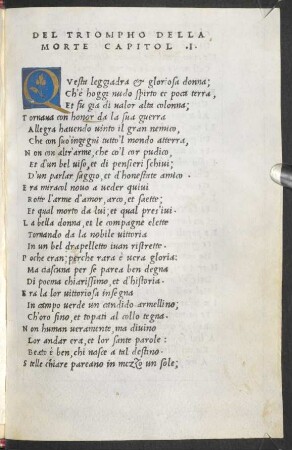 DEL TRIOMPHO DELLA
MORTE CAPITOL .I.
Q Vesta leggiadra et gloriosa donna;
Ch'è hoggi nudo spirto et poca terra,
Et fu gia di valor alta colonna;
Tornaua con honor da la sua guerra
Allegra hauendo uinto il gran nemico,
Che con suo' ingegni tutto'l mondo atterra,
Non con altr'arme, che col cor pudico,
Et d'un bel uiso, et di pensieri schiui;
D'un parlar saggio, et d'honestate amico.
Era miracol nouo a ueder quiui
Rotte l'arme d'amor, arco, et saette;
Et qual morto da lui; et qual pres'iui.
La bella donna, et le compagne elette
Tornando da la nobile uittoria
In un bel drapelletto iuan ristrette.
Poche eran; perche rara è uera gloria:
Ma ciascuna per se parea ben degna
Di poema chiarissimo, et d'historia.
Era la lor uittoriosa insegna
In campo uerde un candido armellino;
Ch'oro fino, et topati al collo tegna.
Non human ueramente, ma diuino
Lor andar era, et lor sante parole:
Beato è ben, chi nasce a tal destino.
Stelle chiare pareano in mezzo un sole;